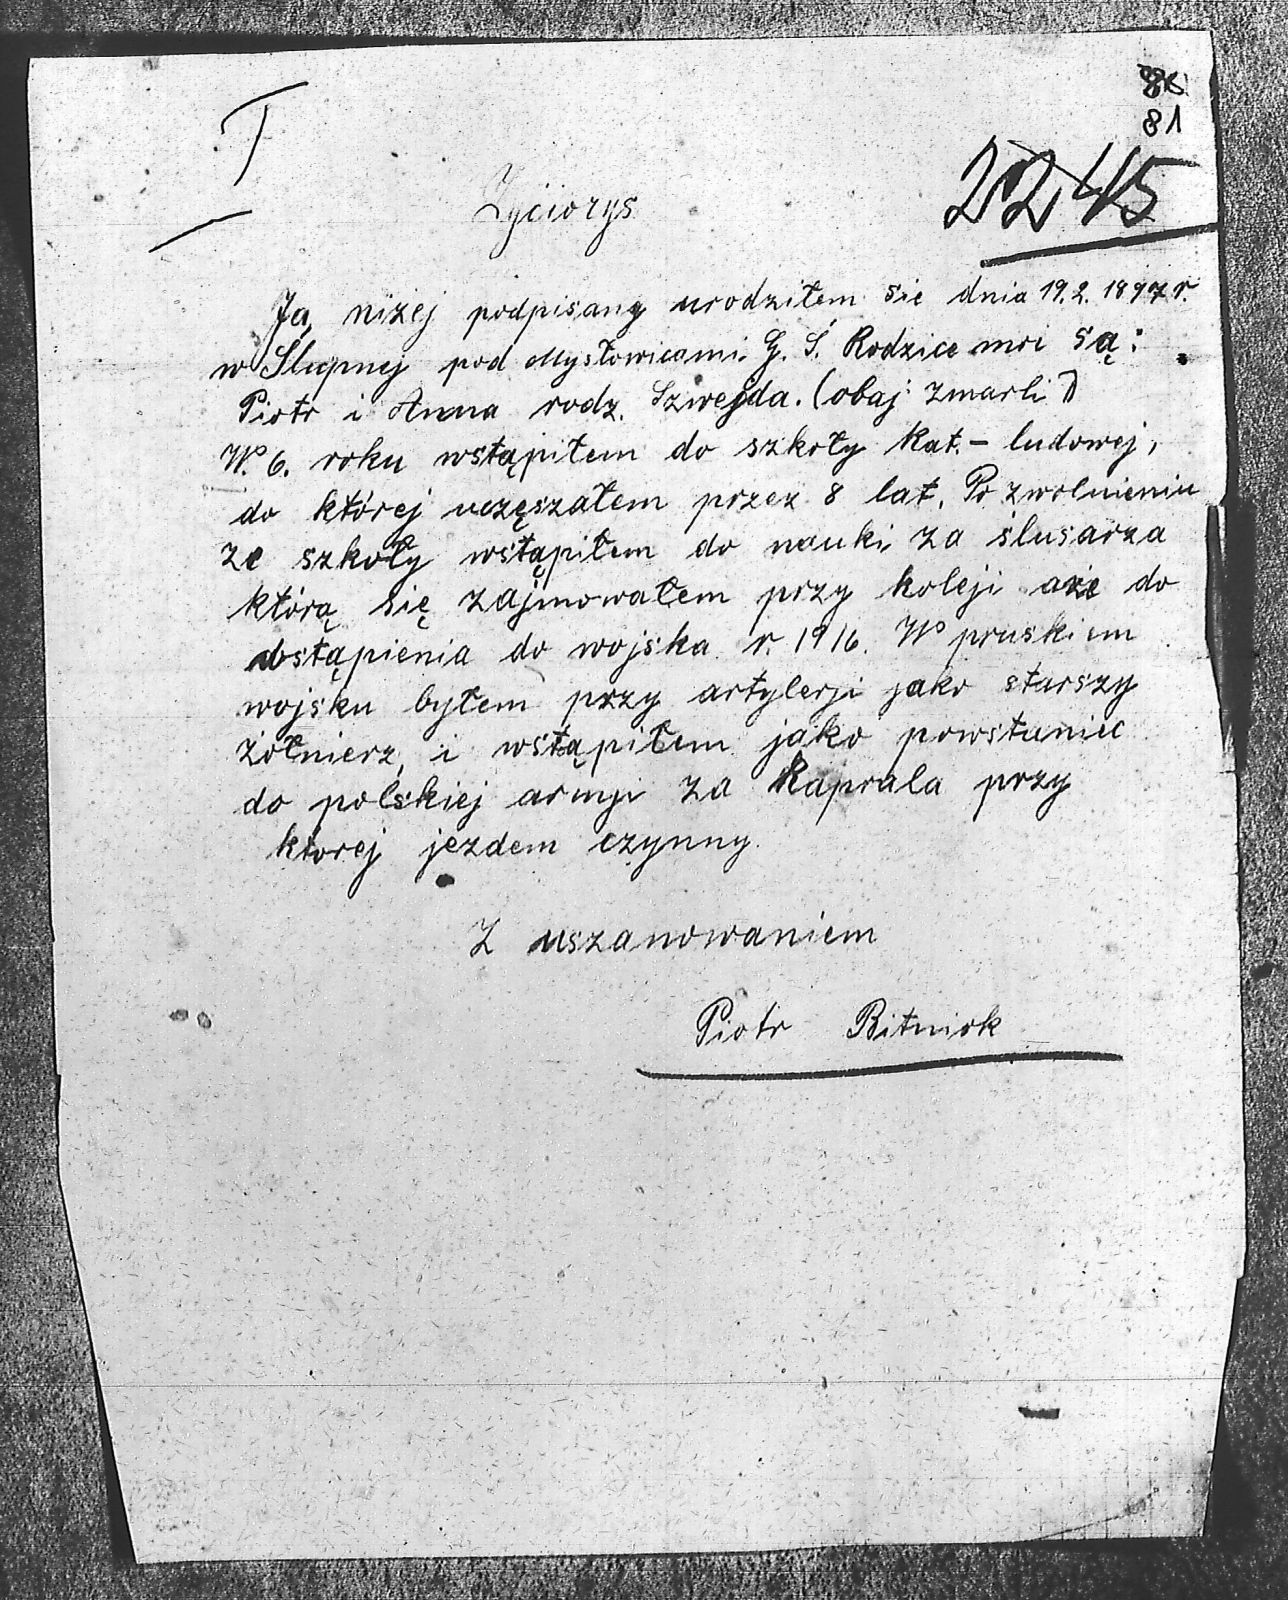 81
2245
Życiorys
Ja, niżej podpisany urodziłem sie dnia 19.2. 1897 r.
w Słupnej pod Mysłowicami. G. Ś. Rodzice moi są:
Piotr i Anna rodz. Szwejda. (obaj zmarli)
W 6. roku wstąpiłem do szkoły kat. - ludowej,
do której uczęszałem przez 8 lat. Po zwolnieniu
ze szkoły wstąpiłem do nauki, za ślusarza
którą się zajmowałem przy koleji aże do
wstąpienia do wojska r. 1916. W pruskiem
wojsku byłem przy artylerji jako starszy
żołnierz, i wstąpiłem jako powstaniec
do polskiej armji za kaprala przy
ktorej jezdem czynny.
Z uszanowaniem
Piotr Bitniok